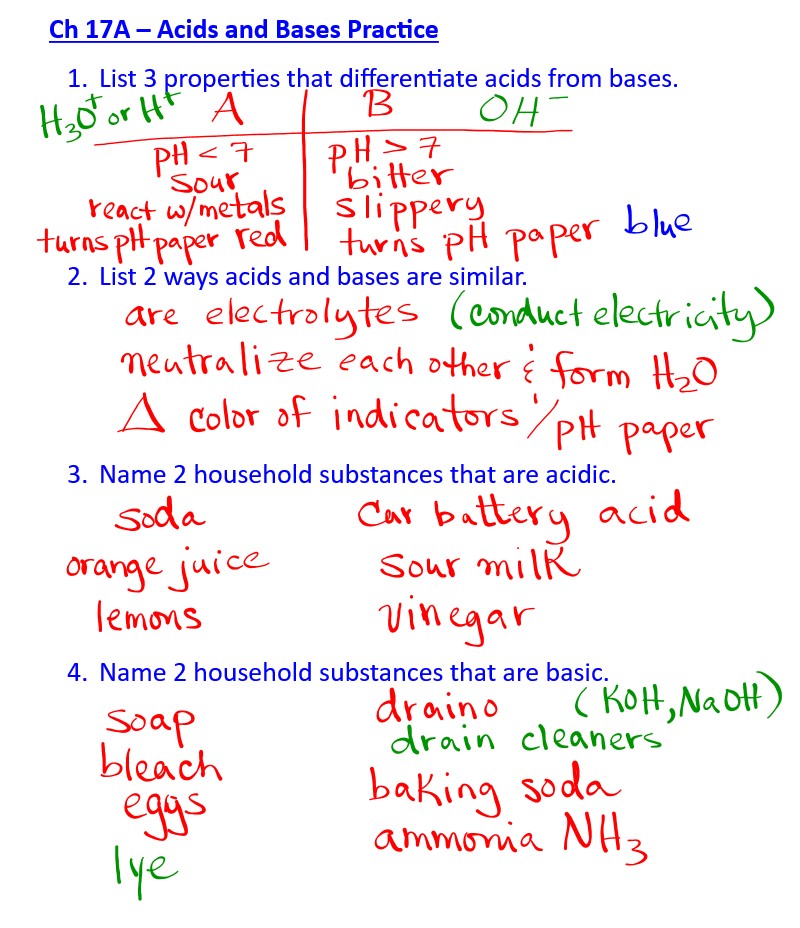 Ch 17A – Acids and Bases Practice
1. List 3 properties that differentiate acids from bases.
H₃O⁺ or H⁺ A B OH⁻
pH < 7 pH > 7
sour bitter
react w/metals slippery
turns pH paper red turns pH paper blue
2. List 2 ways acids and bases are similar.
are electrolytes (conduct electricity)
neutralize each other & form H₂O
Δ color of indicators / pH paper
3. Name 2 household substances that are acidic.
soda Car battery acid
orange juice sour milk
lemons vinegar
4. Name 2 household substances that are basic.
soap draino (KOH, NaOH)
drain cleaners
bleach baking soda
eggs ammonia NH₃
lye